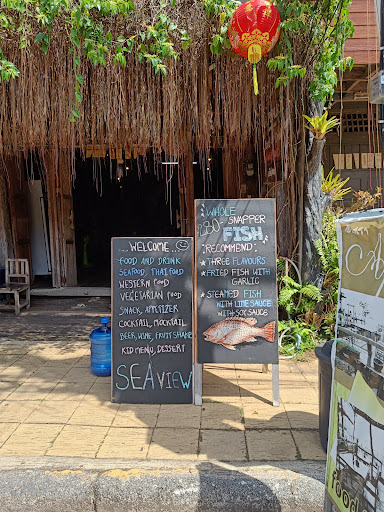 WELCOME
FOOD AND DRINK
SEAFOOD, THAI FOOD
WESTERN FOOD
VEGETARIAN FOOD
SNACK, APPETIZER
COCKTAIL, MOCKTAIL
BEER, WINE, FRUIT SHAKE
KID MENU, DESSERT
SEAVIEW
WHOLE SNAPPER
FISH
RECOMMEND
★ THREE FLAVOURS
★ FRIED FISH WITH
GARLIC
★ STEAMED FISH
WITH LIME SAUCE
WITH SOY SAUCE
food